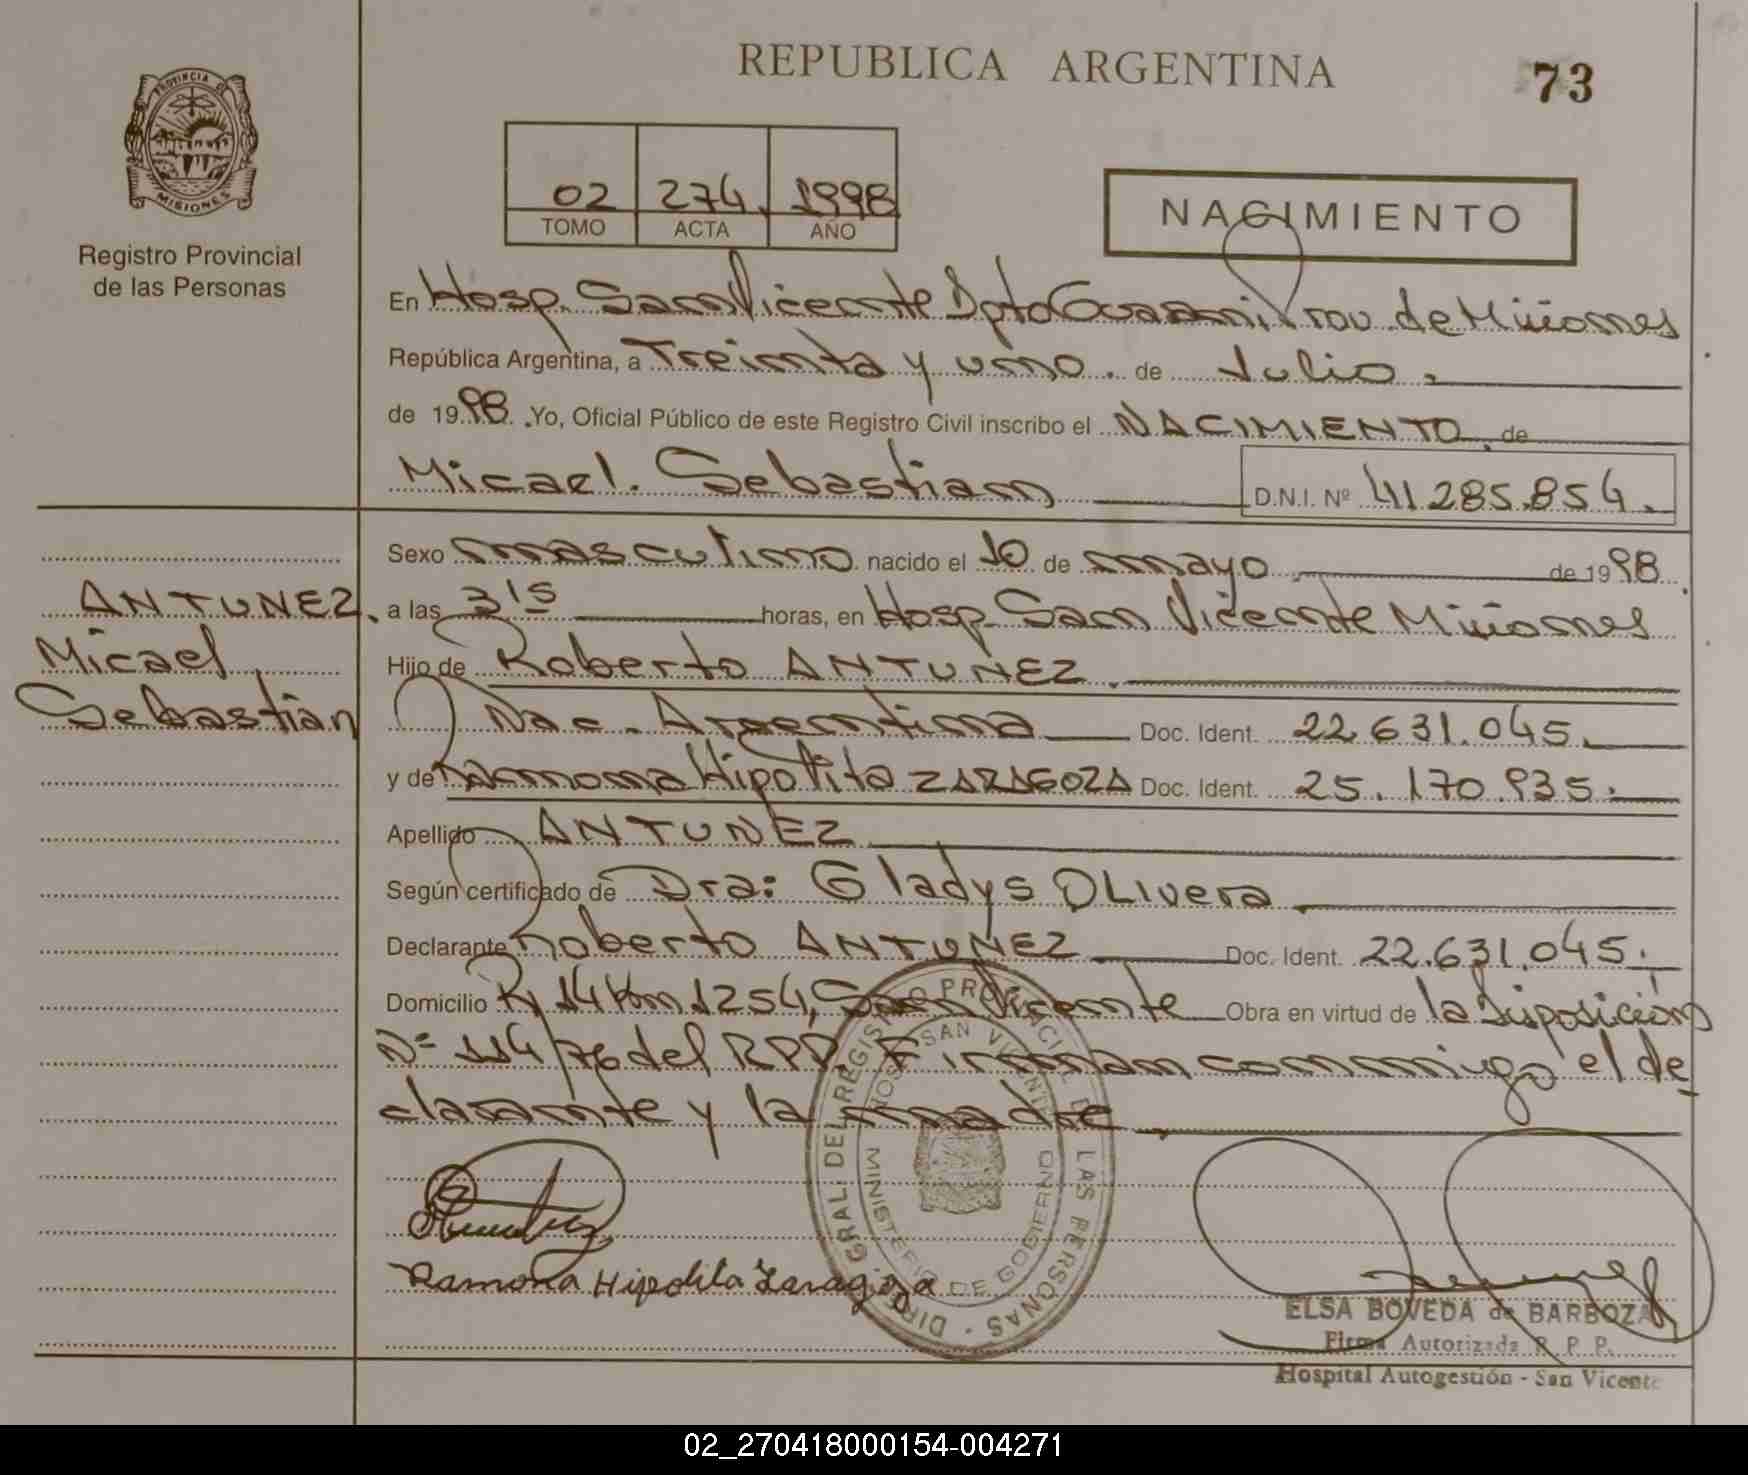 REPUBLICA ARGENTINA
73
PROVINCIA
MISIONES
Registro Provincial
de las Personas
02 274 1998
TOMO ACTA AÑO
NACIMIENTO
En Hosp. San Vicente Dpto Guaraní Prov. de Misiones
República Argentina, a Treinta y uno. de Julio.
de 1998. Yo, Oficial Público de este Registro Civil inscribo el NACIMIENTO. de
Micael. Sebastian D.N.I. Nº 41.285.854.
Sexo masculino nacido el 10 de mayo de 1998.
ANTUNEZ.
a las 3 15 horas, en Hosp. San Vicente Misiones
Micael
Hijo de Roberto ANTUNEZ.
Sebastián
Nac. Argentina Doc. Ident. 22.631.045.
y de Ramona Hipolita ZARAGOZA Doc. Ident. 25.170.935.
Apellido ANTUNEZ
Según certificado de Dra: Gladys OLivera
Declarante Roberto ANTUNEZ Doc. Ident. 22.631.045.
Domicilio R, 14 Km 1254, San Vicente Obra en virtud de la Disposición
Nº 114/76 del RPP. Firman conmigo el de
clarante y la madre.
DIR. GRAL. DEL REGISTRO PROVINCIAL DE LAS PERSONAS
HOSP. SAN VICENTE
MINISTERIO DE GOBIERNO
Ramona Hipolita Zaragoza
ELSA BOVEDA de BARBOZA
Firma Autorizada R. P. P.
Hospital Autogestión - San Vicente
02_270418000154-004271